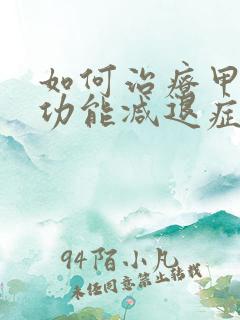 如何治疗甲
功能减退症
94陌小凡
未经同意禁止转载